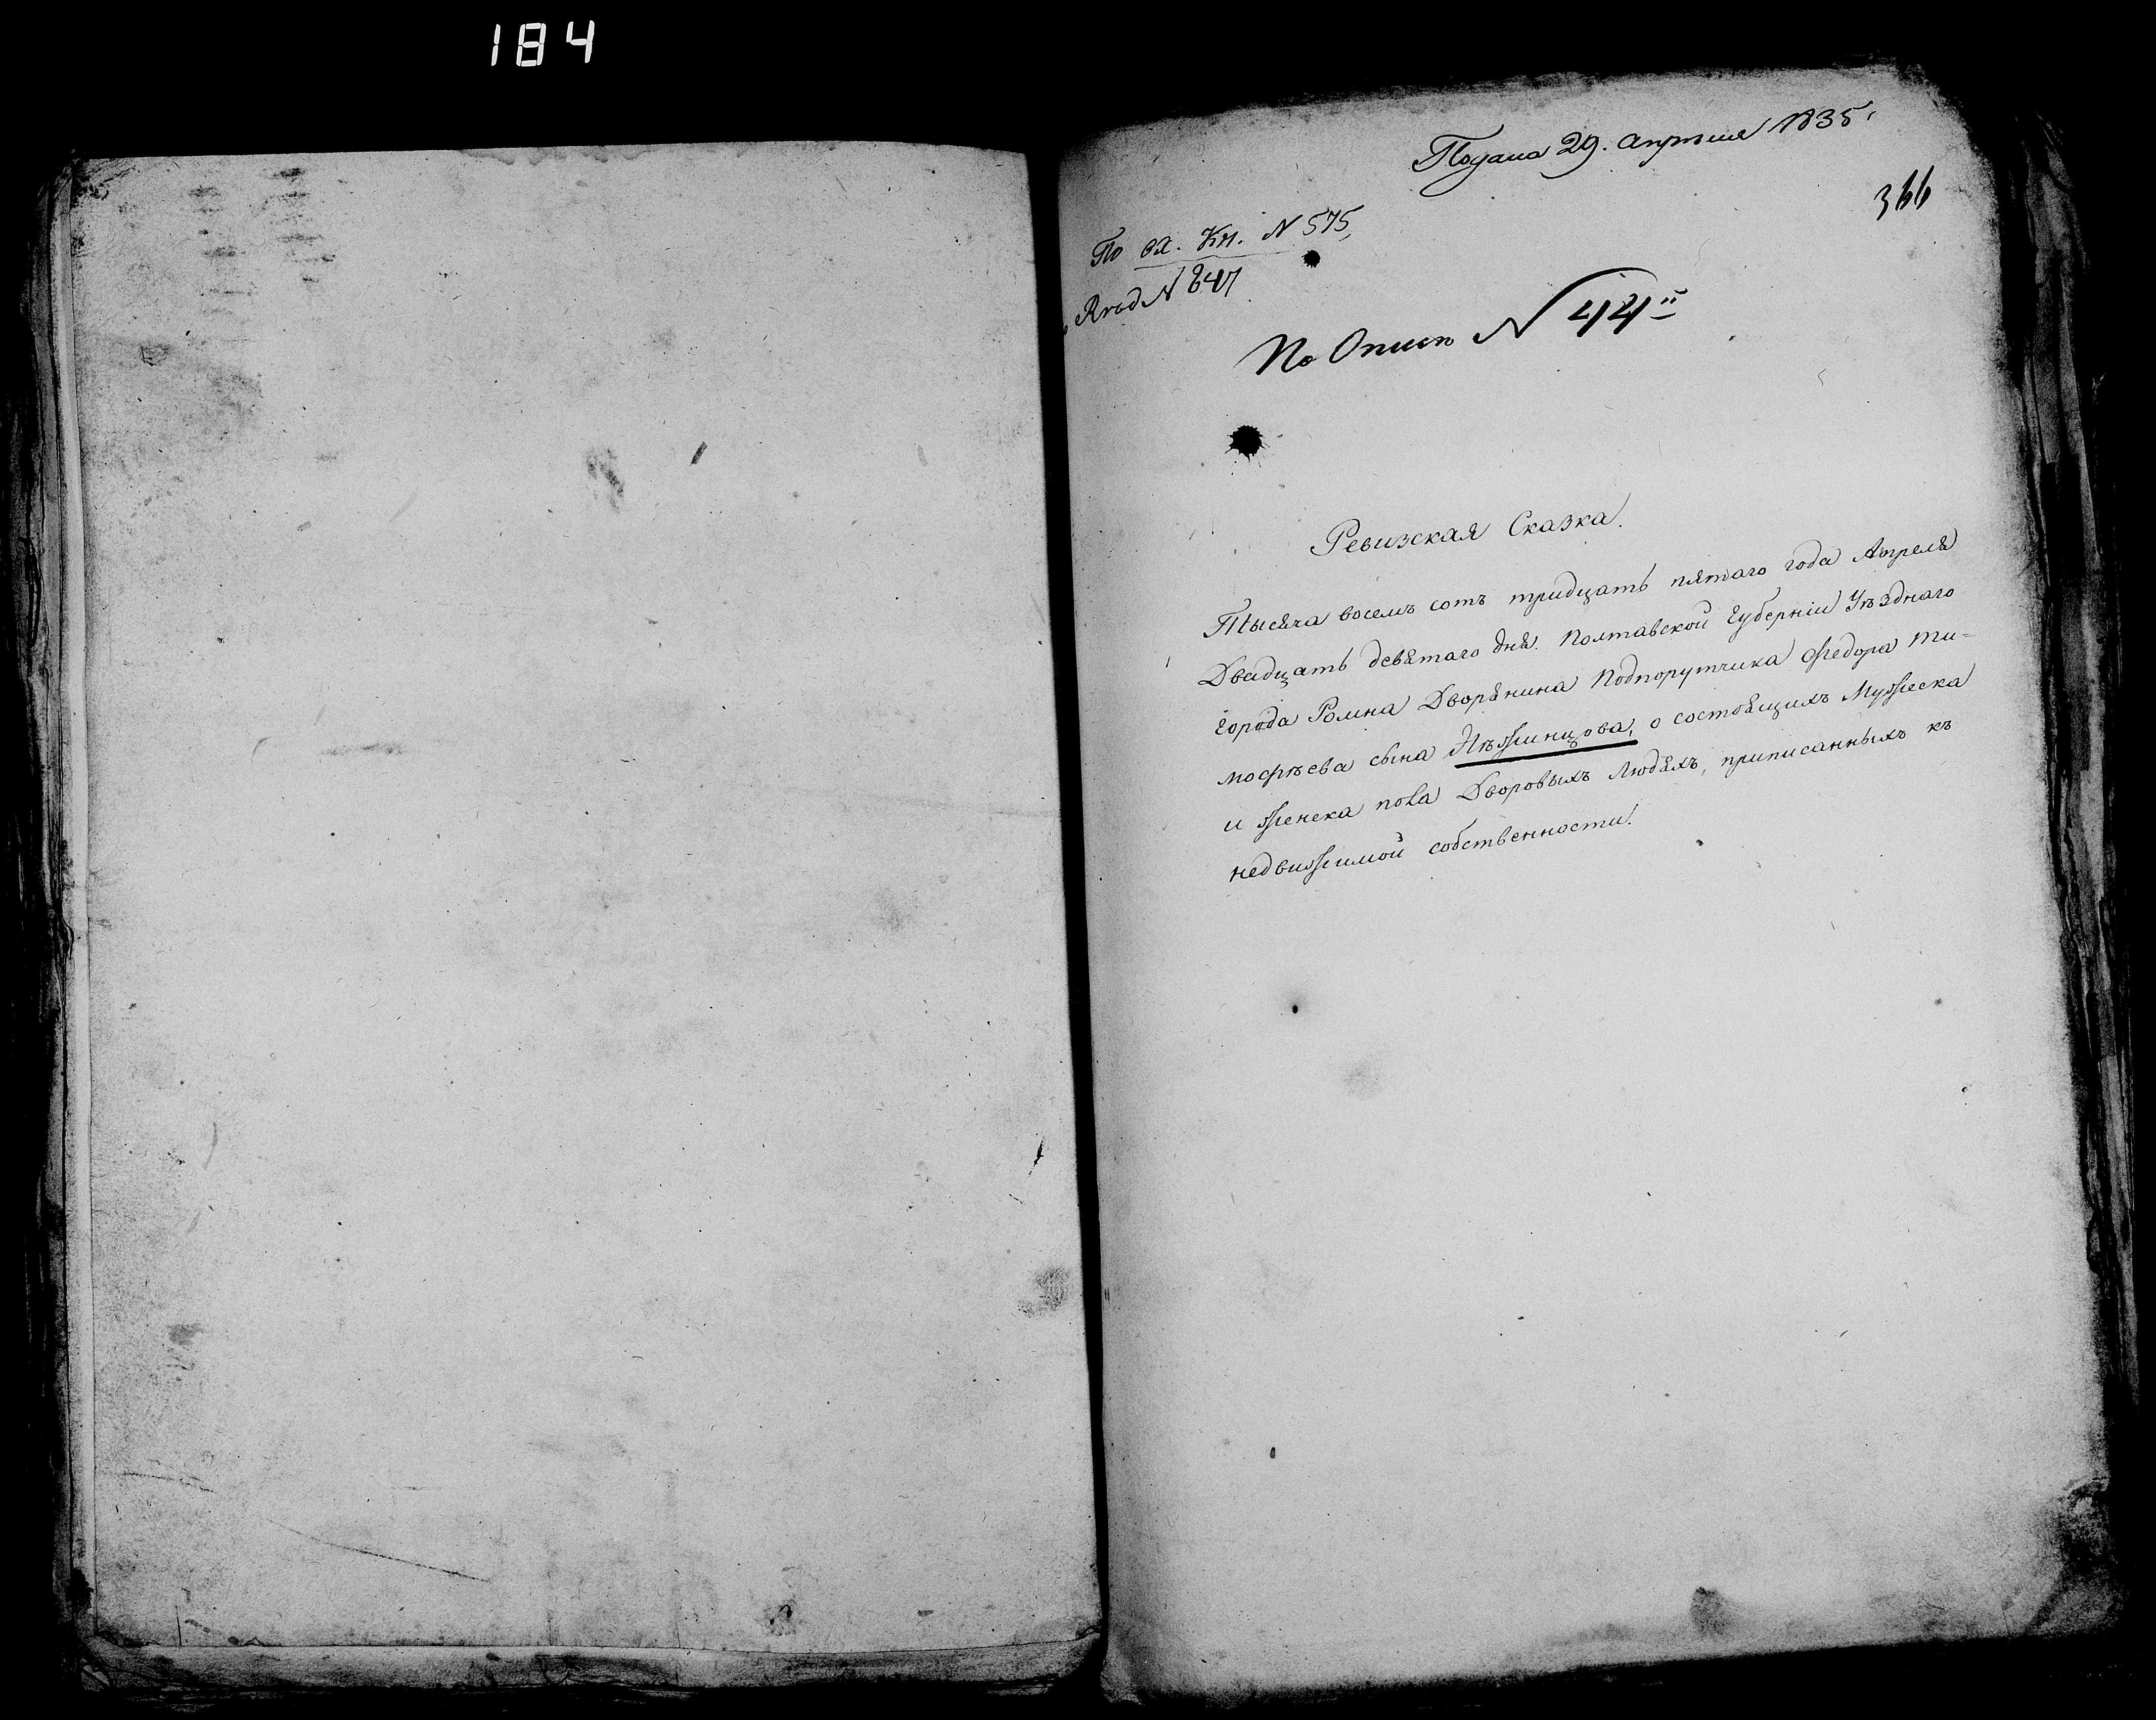 184
Подана 29. апреля 1835.
366
По вх. Кн. N 575,
N 847
По Описи N 44й
Ревизская Сказка.
Тысяча восемъ сотъ тридцать пятаго года Апреля
Двадцать девятаго дня. Полтавской Губерніи Уѣзднаго
города Ромна Дворянина Подпорутчика Федора Ти=
мофѣева сына Нѣжинцова, о состоящихъ Мужеска
и женска пола Дворовыхъ Людяхъ, приписанныхъ къ
недвижимой собственности.